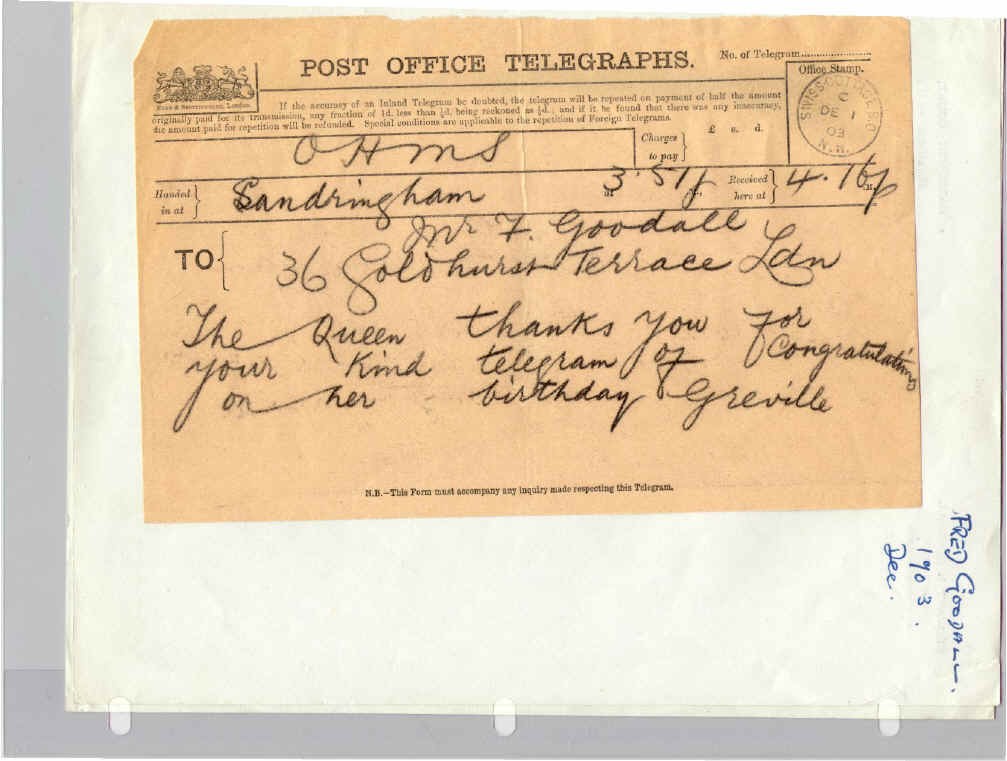 POST OFFICE TELEGRAPHS.
No. of Telegram
Office Stamp.
If the accuracy of an Inland Telegram be doubted, the telegram will be repeated on payment of half the amount
originally paid for its transmission, any fraction of 1d. less than ½d. being reckoned as ½d.; and if it be found that there was any inaccuracy,
the amount paid for repetition will be refunded. Special conditions are applicable to the repetition of Foreign Telegrams.
SWISS COTTAGE B.O.
C
DE 1
03
N.W.
OHMS
Charges to pay
£ s. d.
Handed in at
Sandringham
at 3.51 p
Received here at
4.16 p
TO
Mr F. Goodall
36 Goldhurst Terrace Ldn
The Queen thanks you for
your kind telegram of congratulations
on her birthday Greville
N.B.—This Form must accompany any inquiry made respecting this Telegram.
FRED GOODALL.
1903.
Dec.